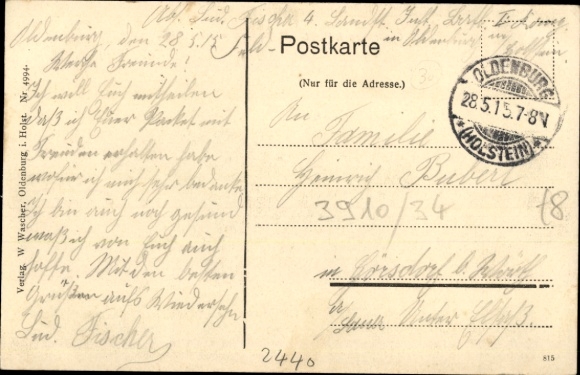 Abs. Lud. Fischer 4. Landst. Inft. Batt.
in Oldenburg in Holstein
Feld-
Postkarte
(Nur für die Adresse.)
OLDENBURG
28.5.15.7-8V
*(HOLSTEIN)*
Oldenburg, den 28.5.15
Werthe Freunde!
Ich will Euch mittheilen
daß ich Euer Packet mit
Freuden erhalten habe
wofür ich mich sehr bedanke
Ich bin auch noch gesund
was ich von Euch auch
hoffe. Mit den besten
Grüßen aufs Wiedersehn
Lud. Fischer
An
Familie
Heinrich
3910/34
in Görsdorf b. Wörth
Unter Elsaß
2440
815
Verlag. W Wascher, Oldenburg i. Holst. Nr. 4994.